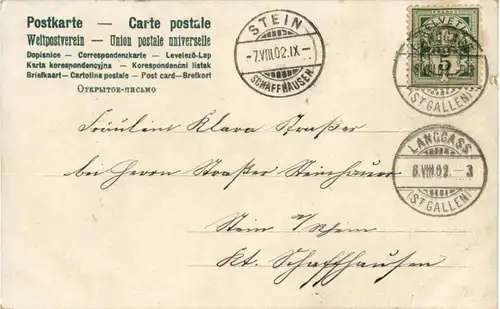 Postkarte — Carte postale
Weltpostverein — Union postale universelle
Dopisnice — Correspondenzkarte — Levelező-Lap
Karta korespondencyjna — Korespondenční listek
Briefkaart — Cartolina postale — Post card — Brefkort
Открытое-письмо
STEIN
-7.VIII.02.IX-
SCHAFFHAUSEN
HELVETIA
LANGGASS
(ST. GALLEN)
LANGGASS
6.VIII.02.-3
(ST. GALLEN)
Fräulein Klara Straßer
bei Herrn Straßer Steinhauer
Stein a/Rhein
Kt. Schaffhausen